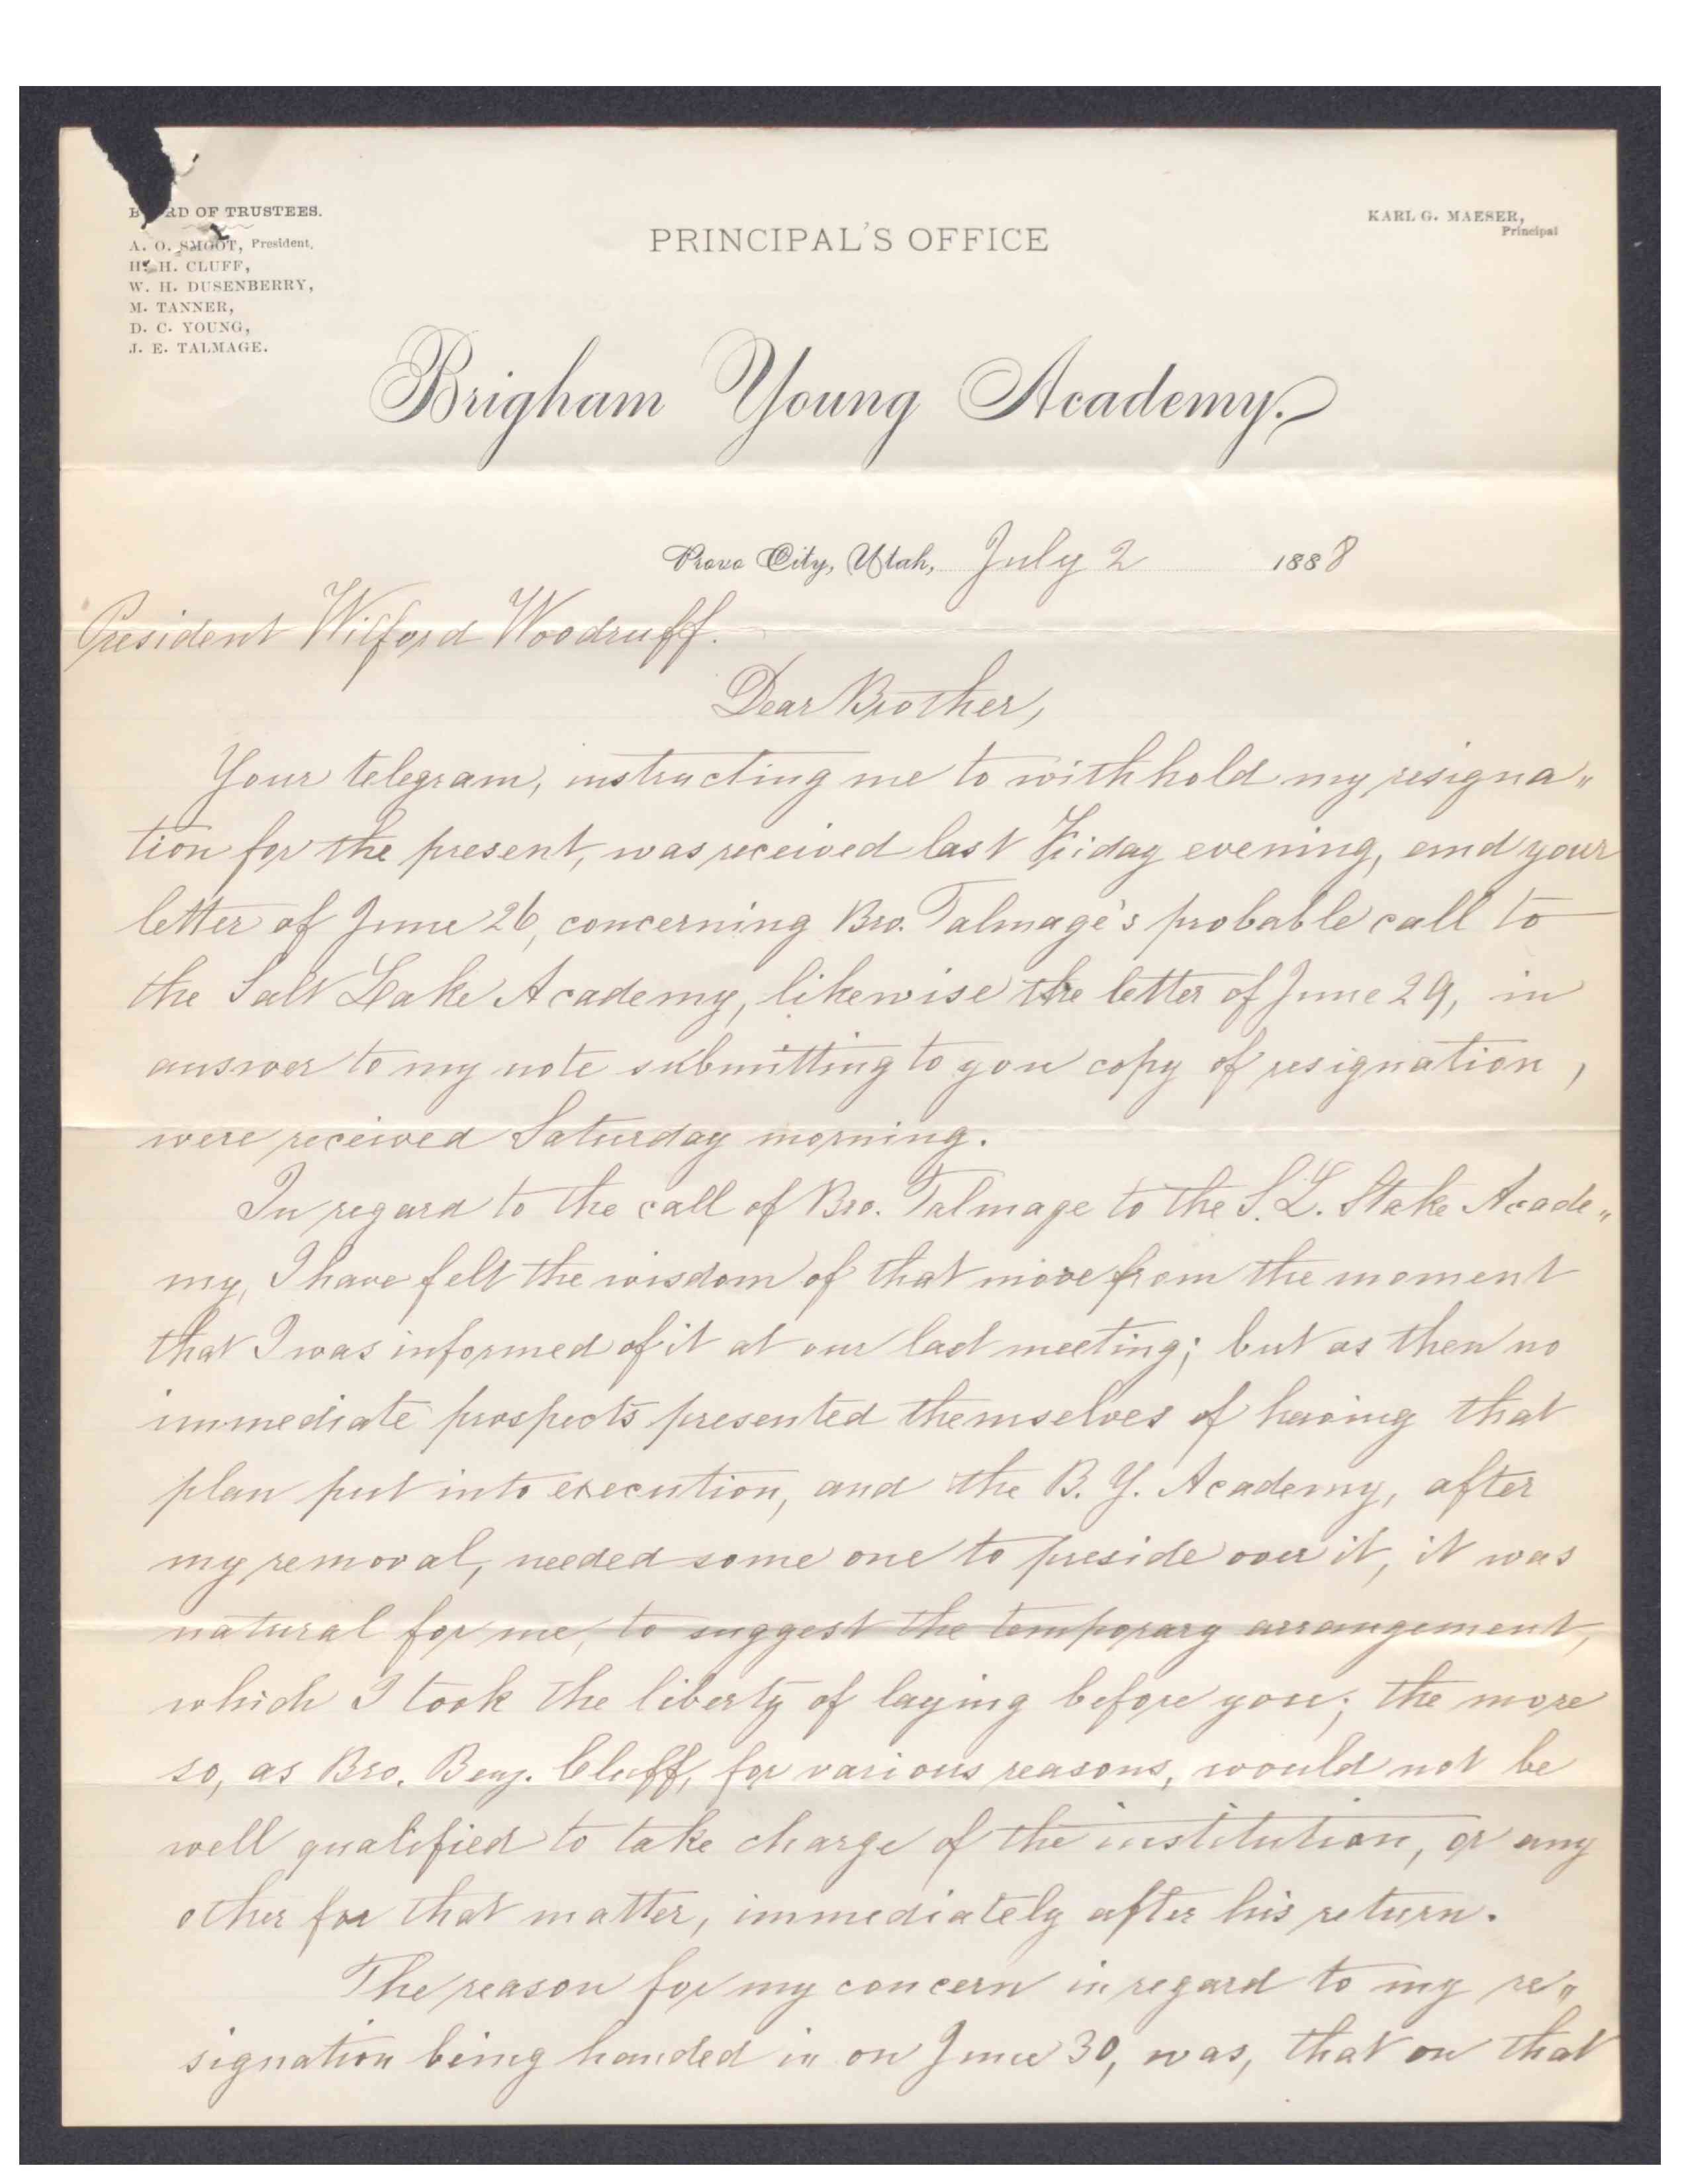 B RD OF TRUSTEES.
A. O. SMOOT, President.
H. H. CLUFF,
W. H. DUSENBERRY,
M. TANNER,
D. C. YOUNG,
J. E. TALMAGE.
PRINCIPAL'S OFFICE
KARL G. MAESER,
Principal
Brigham Young Academy.
Provo City, Utah, July 2 1888
President Wilford Woodruff.
Dear Brother,
Your telegram, instructing me to withhold my resigna„
tion for the present, was received last Friday evening, and your
letter of June 26, concerning Bro. Talmage's probable call to
the Salt Lake Academy, likewise the letter of June 29, in
answer to my note submitting to you copy of resignation,
were received Saturday morning.
In regard to the call of Bro. Talmage to the S. L. Stake Acade„
my, I have felt the wisdom of that move from the moment
that I was informed of it at our last meeting; but as then no
immediate prospects presented themselves of having that
plan put into execution, and the B. Y. Academy, after
my removal, needed some one to preside over it, it was
natural for me, to suggest the temporary arrangement,
which I took the liberty of laying before you; the more
so, as Bro. Benj. Cluff, for various reasons, would not be
well qualified to take charge of the institution, or any
other for that matter, immediately after his return.
The reason for my concern in regard to my re„
signation being handed in on June 30, was, that on that